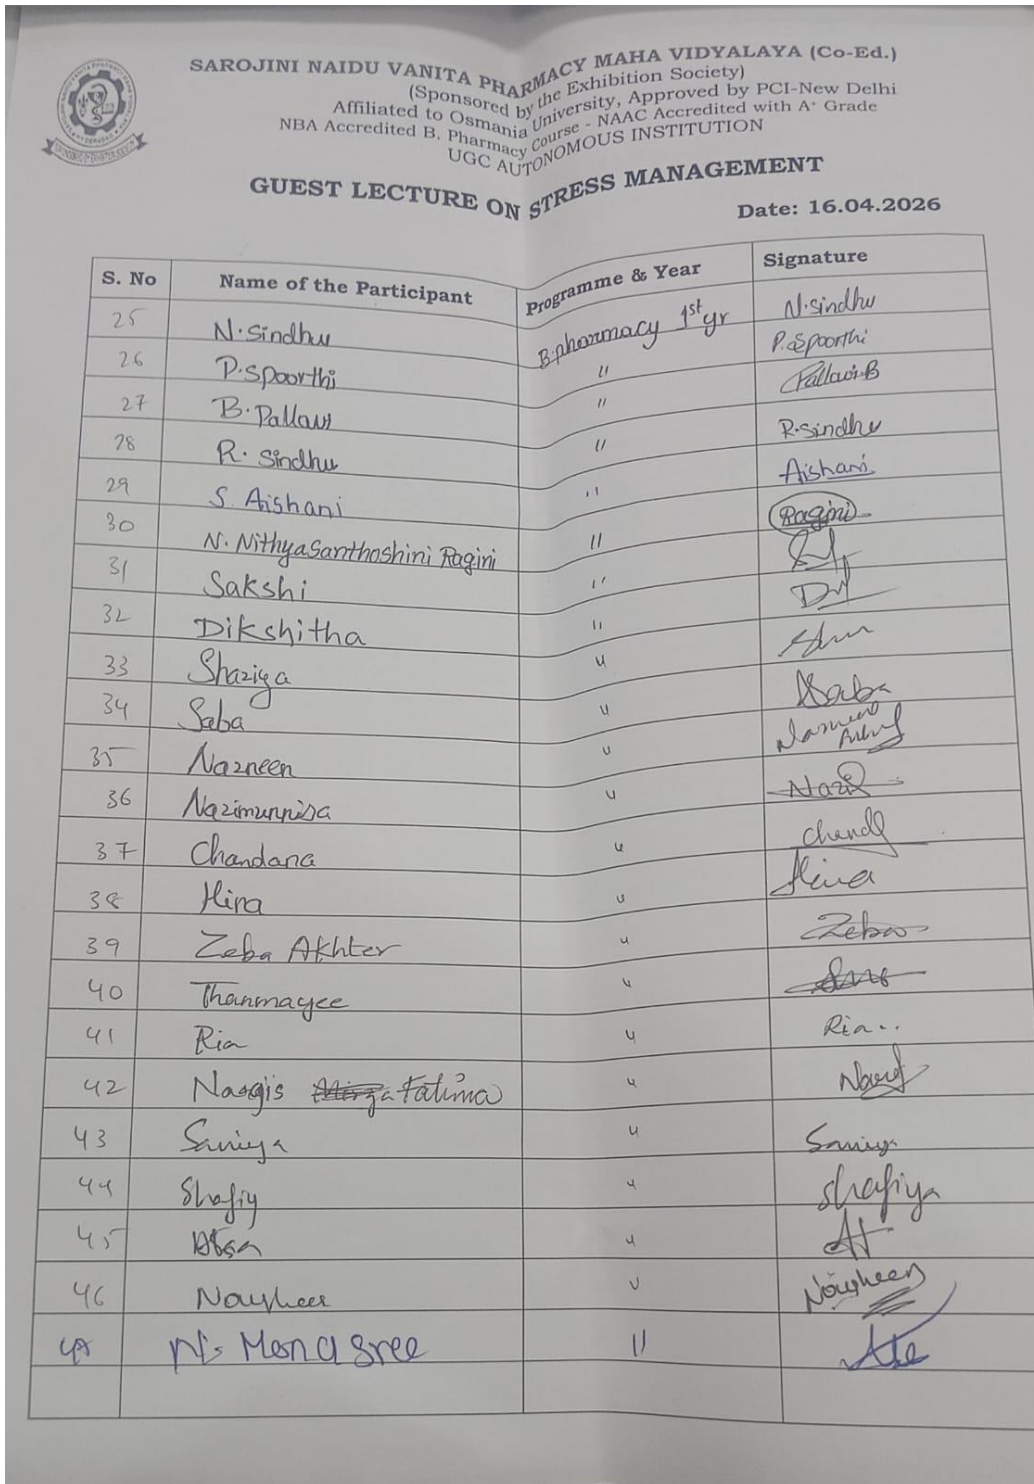 SAROJINI NAIDU VANITA PHARMACY MAHA VIDYALAYA (Co-Ed.)
(Sponsored by the Exhibition Society)
Affiliated to Osmania University, Approved by PCI-New Delhi
NBA Accredited B. Pharmacy Course - NAAC Accredited with A+ Grade
UGC AUTONOMOUS INSTITUTION
GUEST LECTURE ON STRESS MANAGEMENT
Date: 16.04.2026
S. No Name of the Participant Programme & Year Signature
25 N.Sindhu B.pharmacy 1st yr N.Sindhu
26 P.Spoorthi " P.Spoorthi
27 B.Pallavi " Pallavi.B
28 R. Sindhu " R.Sindhu
29 S. Aishani " Aishani
30 N. Nithya Santhoshini Ragini " Ragini
31 Sakshi "
32 Dikshitha "
33 Shaziya "
34 Saba " Saba
35 Nazneen "
36 Nazimunnisa "
37 Chandana "
38 Hina " Hina
39 Zeba Akhter " Zeba
40 Thanmayee "
41 Ria " Ria..
42 Nargis Fatima "
43 Saniya " Saniya
44 Shafiy " Shafiya
45 "
46 "
47 "